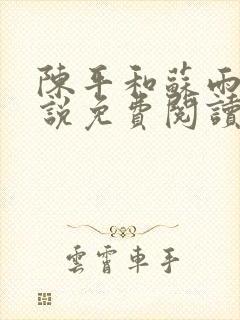 陳平和蘇雨
說免費閱讀
雲霄車手